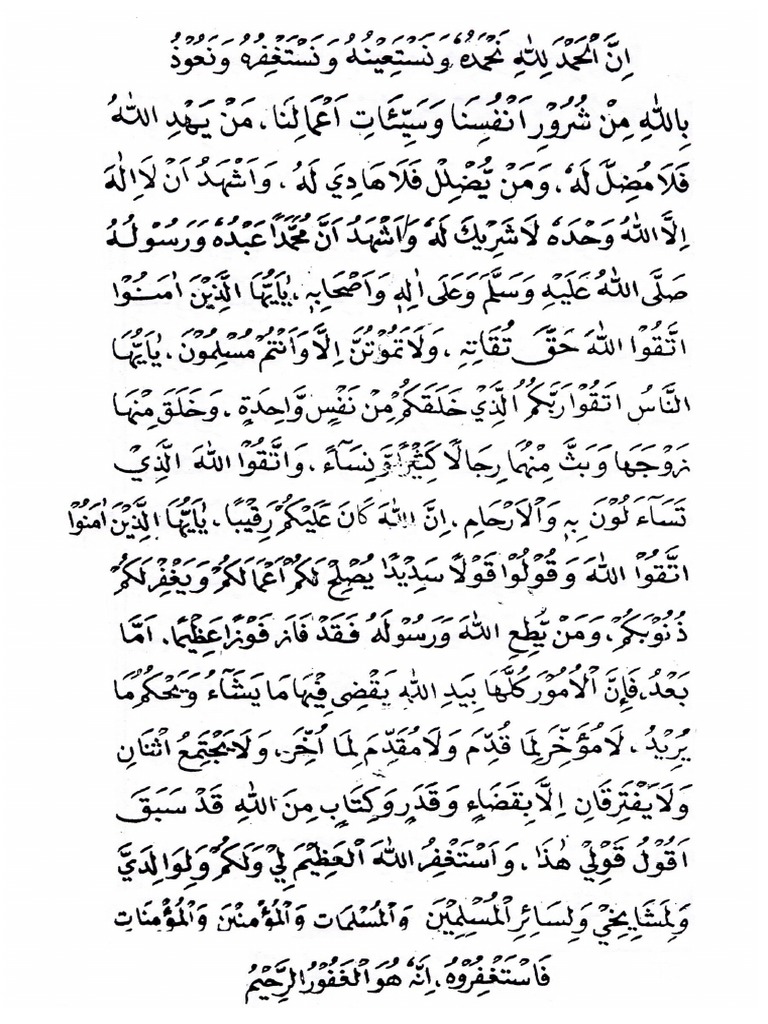 اِنَّ الْحَمْدَ لِلّٰهِ نَحْمَدُهُ وَنَسْتَعِيْنُهُ وَنَسْتَغْفِرُهُ وَنَعُوْذُ
بِاللّٰهِ مِنْ شُرُوْرِ اَنْفُسِنَا وَسَيِّئَاتِ اَعْمَالِنَا، مَنْ يَهْدِ اللّٰهُ
فَلَا مُضِلَّ لَهُ، وَمَنْ يُّضْلِلْ فَلَا هَادِيَ لَهُ، وَاَشْهَدُ اَنْ لَا اِلٰهَ
اِلَّا اللّٰهُ وَحْدَهُ لَا شَرِيْكَ لَهُ وَاَشْهَدُ اَنَّ مُحَمَّدًا عَبْدُهُ وَرَسُوْلُهُ
صَلَّى اللّٰهُ عَلَيْهِ وَسَلَّمَ وَعَلٰى اٰلِهٖ وَاَصْحَابِهٖ، يٰاَيُّهَا الَّذِيْنَ اٰمَنُوْا
اتَّقُوْا اللّٰهَ حَقَّ تُقَاتِهٖ، وَلَا تَمُوْتُنَّ اِلَّا وَاَنْتُمْ مُسْلِمُوْنَ، يٰاَيُّهَا
النَّاسُ اتَقُوْا رَبَّكُمُ الَّذِيْ خَلَقَكُمْ مِنْ نَفْسٍ وَّاحِدَةٍ، وَخَلَقَ مِنْهَا
زَوْجَهَا وَبَثَّ مِنْهُمَا رِجَالًا كَثِيْرًا وَّنِسَآءً، وَاتَّقُوْا اللّٰهَ الَّذِيْ
تَسَآءَلُوْنَ بِهٖ وَالْاَرْحَامِ، اِنَّ اللّٰهَ كَانَ عَلَيْكُمْ رَقِيْبًا، يٰاَيُّهَا الَّذِيْنَ اٰمَنُوْا
اتَّقُوْا اللّٰهَ وَقُوْلُوْا قَوْلًا سَدِيْدًا يُصْلِحْ لَكُمْ اَعْمَالَكُمْ وَيَغْفِرْ لَكُمْ
ذُنُوْبَكُمْ، وَمَنْ يُّطِعِ اللّٰهَ وَرَسُوْلَهُ فَقَدْ فَازَ فَوْزًا عَظِيْمًا. اَمَّا
بَعْدُ، فَاِنَّ الْاُمُوْرَ كُلَّهَا بِيَدِ اللّٰهِ يَقْضِى فِيْهَا مَا يَشَآءُ وَيَحْكُمُ مَا
يُرِيْدُ، لَا مُؤَخِّرَ لِمَا قُدِّمَ وَلَا مُقَدِّمَ لِمَا اُخِّرَ، وَلَا يَجْتَمِعُ اثْنَانِ
وَلَا يَفْتَرِقَانِ اِلَّا بِقَضَاءٍ وَقَدَرٍ وَكِتَابٍ مِنَ اللّٰهِ قَدْ سَبَقَ
اَقُوْلُ قَوْلِيْ هٰذَا، وَاَسْتَغْفِرُ اللّٰهَ الْعَظِيْمَ لِيْ وَلَكُمْ وَلِوَالِدَيَّ
وَلِمَشَايِخِيْ وَلِسَائِرِ الْمُسْلِمِيْنَ وَالْمُسْلِمَاتِ وَالْمُؤْمِنِيْنَ وَالْمُؤْمِنَاتِ
فَاسْتَغْفِرُوْهُ، اِنَّهُ هُوَ الْغَفُوْرُ الرَّحِيْمُ